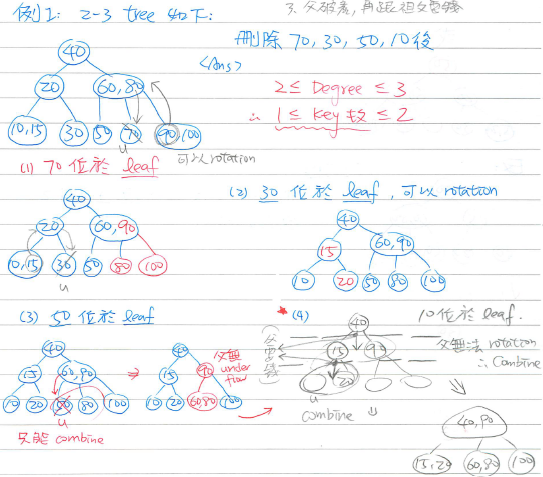 例1: 2-3 tree 如下:
3. 父破產,再跟祖父要錢
刪除 70, 30, 50, 10後
<Ans>
2 ≤ Degree ≤ 3
∴ 1 ≤ key 數 ≤ 2
40
20 60,80
10,15 30 50 70 90,100
u
可以rotation
(1) 70 位於 leaf
40
20 60,90
10,15 30 50 80 100
u
(2) 30 位於 leaf, 可以rotation
40
15 60,90
10 20 50 80 100
(3) 50 位於 leaf
40
15 60,90
10 20 50 80 100
u
只能 combine
⇒
40
15 90
10 20 60,80 100
父無
under
flow
(4) 10位於 leaf.
40
15 90
20
u
combine
父無法 rotation
∴ Combine
40,90
15,20 60,80 100